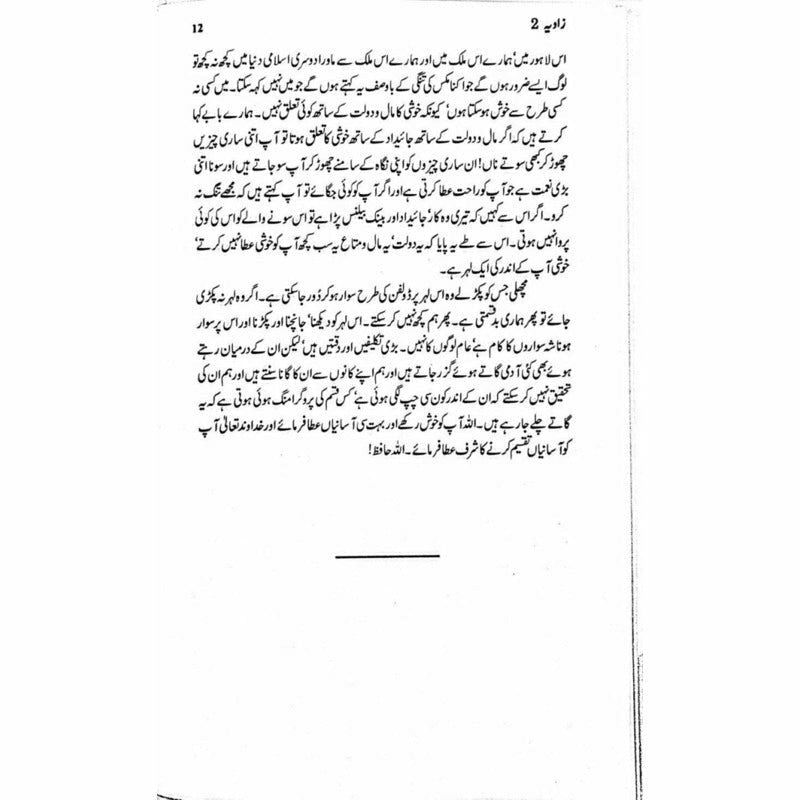 زاویہ 2
12
اس لاہور میں‘ ہمارے اس ملک میں اور ہمارے اس ملک سے ماورا دوسری اسلامی دنیا میں کچھ نہ کچھ تو
لوگ ایسے ضرور ہوں گے جو اکنامکس کی تنگی کے باوصف یہ کہتے ہوں گے جو میں نہیں کہہ سکتا۔ میں کسی نہ
کسی طرح سے خوش ہو سکتا ہوں‘ کیونکہ خوشی کا مال و دولت کے ساتھ کوئی تعلق نہیں۔ ہمارے بابے کہا
کرتے ہیں کہ اگر مال و دولت کے ساتھ جائیداد کے ساتھ خوشی کا تعلق ہوتا تو آپ اتنی ساری چیزیں
چھوڑ کر کبھی سوتے ناں! ان ساری چیزوں کو اپنی نگاہ کے سامنے چھوڑ کر آپ سو جاتے ہیں اور سونا اتنی
بڑی نعمت ہے جو آپ کو راحت عطا کرتی ہے اور اگر آپ کو کوئی جگائے تو آپ کہتے ہیں کہ مجھے تنگ نہ
کرو۔ اگر اس سے کہیں کہ تیری وہ کار‘ جائیداد اور بینک بیلنس پڑا ہے تو اس سونے والے کو اس کی کوئی
پروا نہیں ہوتی۔ اس سے طے یہ پایا کہ یہ دولت‘ یہ مال و متاع یہ سب کچھ آپ کو خوشی عطا نہیں کرتے‘
خوشی آپ کے اندر کی ایک لہر ہے۔
مچھلی جس کو پکڑ لے وہ اس لہر پر ڈولفن کی طرح سوار ہو کر دُور جا سکتی ہے۔ اگر وہ لہر نہ پکڑی
جائے تو پھر ہماری بدقسمتی ہے۔ پھر ہم کچھ نہیں کر سکتے۔ اس لہر کو دیکھنا‘ جانچنا اور پکڑنا اور اس پر سوار
ہونا شہ سواروں کا کام ہے‘ عام لوگوں کا نہیں۔ بڑی تکلیفیں اور دقتیں ہیں‘ لیکن ان کے درمیان رہتے
ہوئے بھی کئی آدمی گاتے ہوئے گزر جاتے ہیں اور ہم اپنے کانوں سے ان کا گانا سنتے ہیں اور ہم ان کی
تحقیق نہیں کر سکتے کہ ان کے اندر کون سی چپ لگی ہوئی ہے‘ کس قسم کی پروگرامنگ ہوئی ہوتی ہے کہ یہ
گاتے چلے جا رہے ہیں۔ اللہ آپ کو خوش رکھے اور بہت سی آسانیاں عطا فرمائے اور خداوند تعالیٰ آپ
کو آسانیاں تقسیم کرنے کا شرف عطا فرمائے۔ اللہ حافظ!